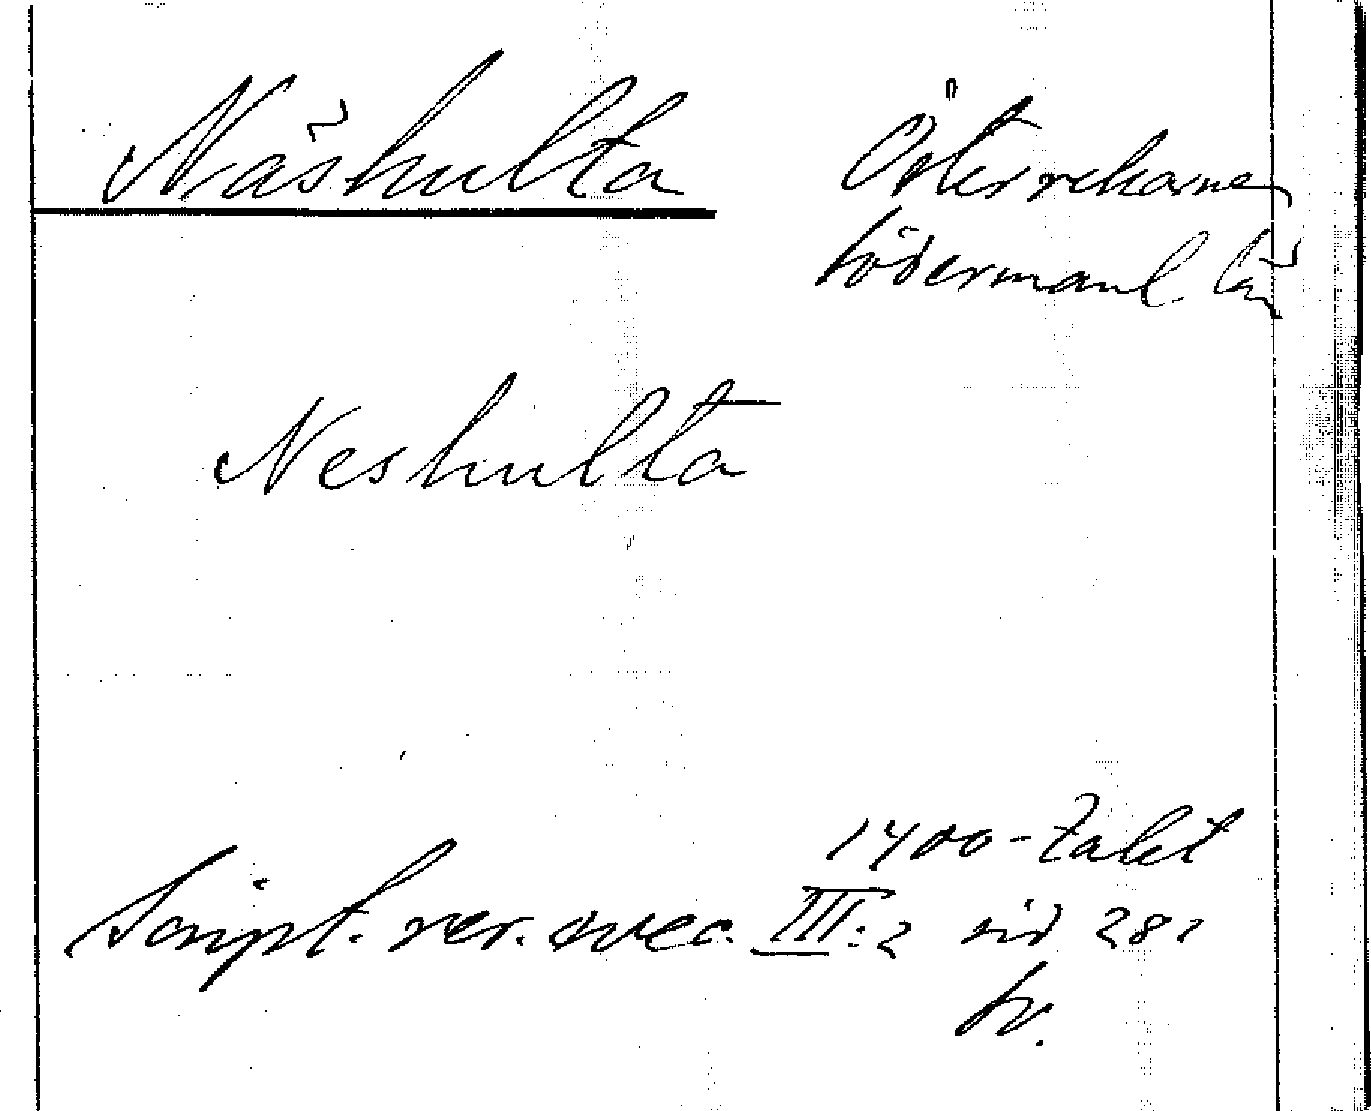 Näshulta Österrekarne
Södermanl. län
Neshulta
1400-talet
Script. rer. svec. III:2 sid 282
Sv.